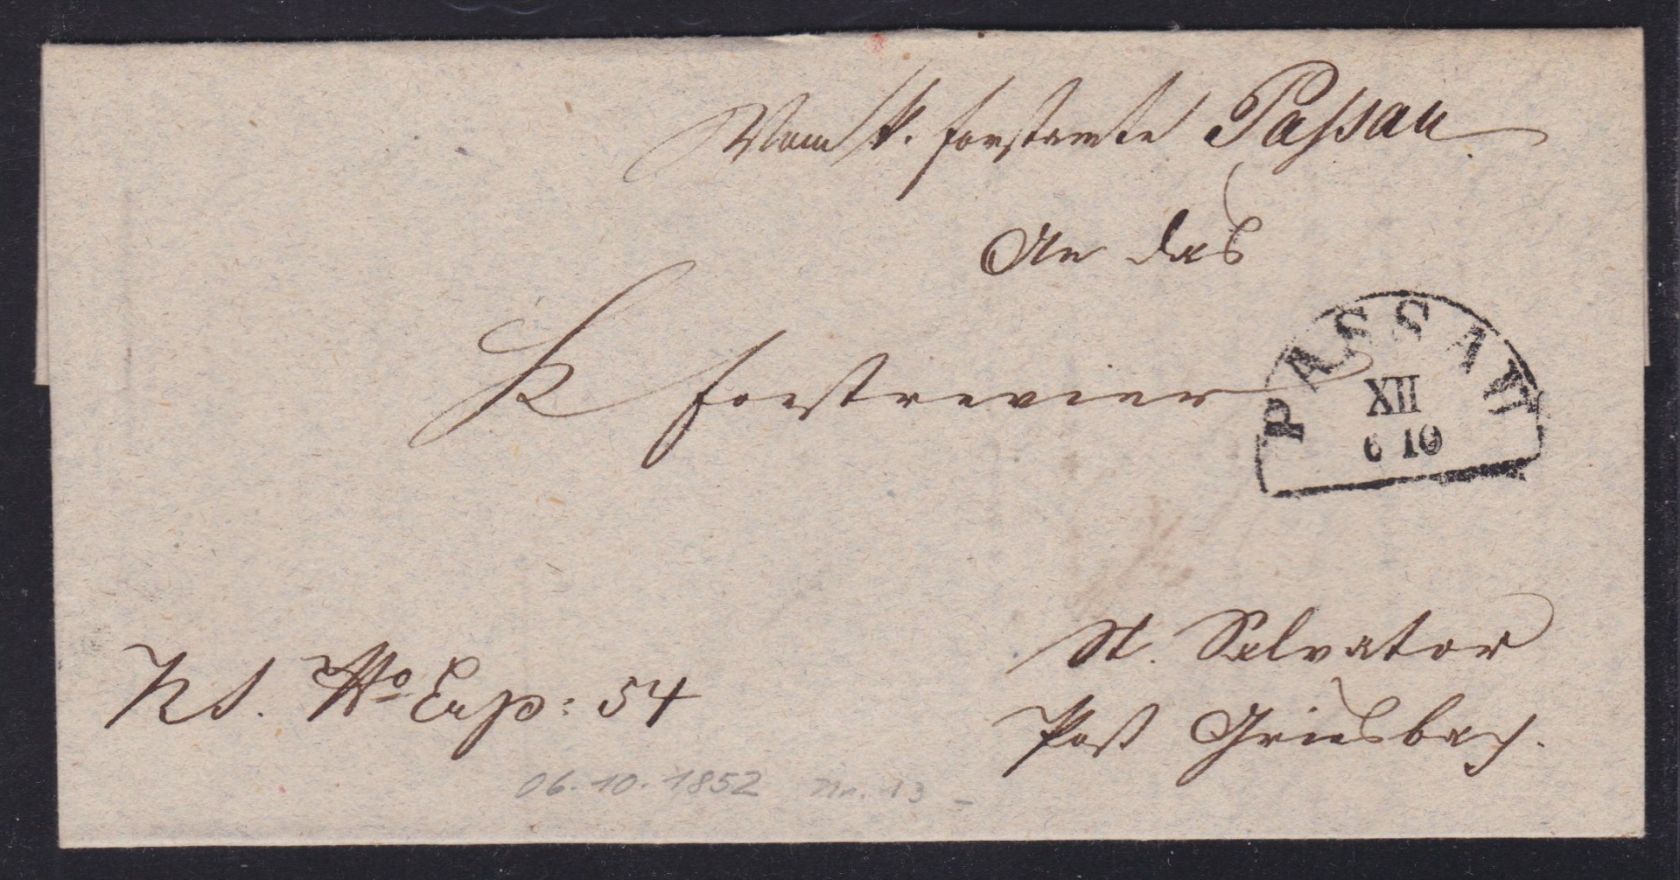 Vom k. Forstamte Passau
An das
K Forstrevier
PASSAU
XII
6 10
St. Salvator
Post Griesbach.
RS. No Exp: 54
06.10.1852 Nr. 13